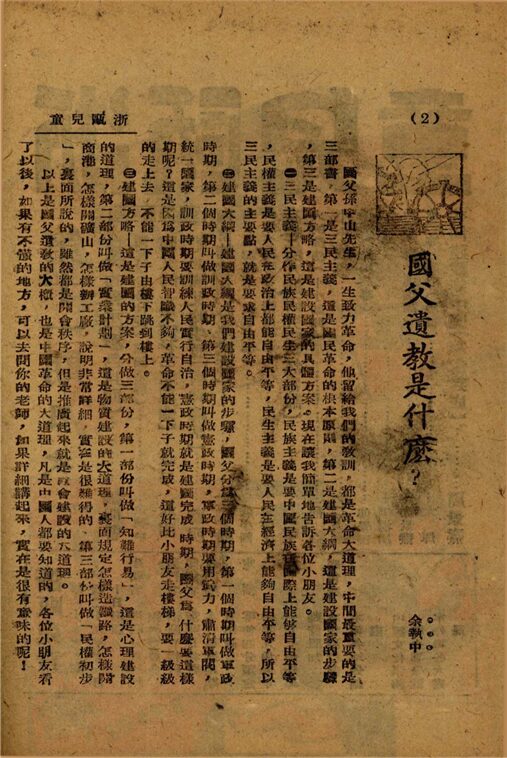 (2)
浙甌兒童
國父遺教是什麼？
余執中
國父孫中山先生，一生致力革命，他留給我們的教訓，都是革命大道理，中間最重要的是
三部書，第一是三民主義，這是國民革命的根本原則，第二是建國大綱，這是建設國家的步驟
，第三是建國方略，這是建設國家的具體方案。現在讓我簡單地告訴各位小朋友。
㊀三民主義—分作民族民權民生三大部份，民族主義是要中國民族在國際上能够自由平等
，民權主義是要人民在政治上都能自由平等，民生主義是要人民在經濟上能够自由平等，所以
三民主義的主要點，就是要求自由平等。
㊁建國大綱—建國大綱是我們建設國家的步驟，國父分為三個時期，第一個時期叫做軍政
時期，第二個時期叫做訓政時期，第三個時期叫做憲政時期，軍政時期要用武力，肅清軍閥，
統一國家，訓政時期要訓練人民實行自治，憲政時期就是建國完成時期，國父為什麼要這樣
期呢？這是因為中國人民智識不够，革命不能一下子就完成，這好比小朋友走樓梯，要一級級
的走上去，不能一下子由樓下跳到樓上。
㊂建國方略—這是建國的方案，分做三部份，第一部份叫做「知難行易」，這是心理建設
的道理，第二部份叫做「實業計劃」，這是物質建設的大道理，裏面規定怎樣造鐵路，怎樣開
商港，怎樣開礦山，怎樣辦工廠，說明非常詳細，實在是很難得的、第三部份叫做「民權初步
」，裏面所說的，雖然都是開會秩序，但是推廣起來就是社會建設的大道理。
以上是國父遺教的大概，也是中國革命的大道理，凡是中國人都要知道的，各位小朋友看
了以後，如果有不懂的地方，可以去問你的老師，如果詳細講起來，實在是很有意味的呢！